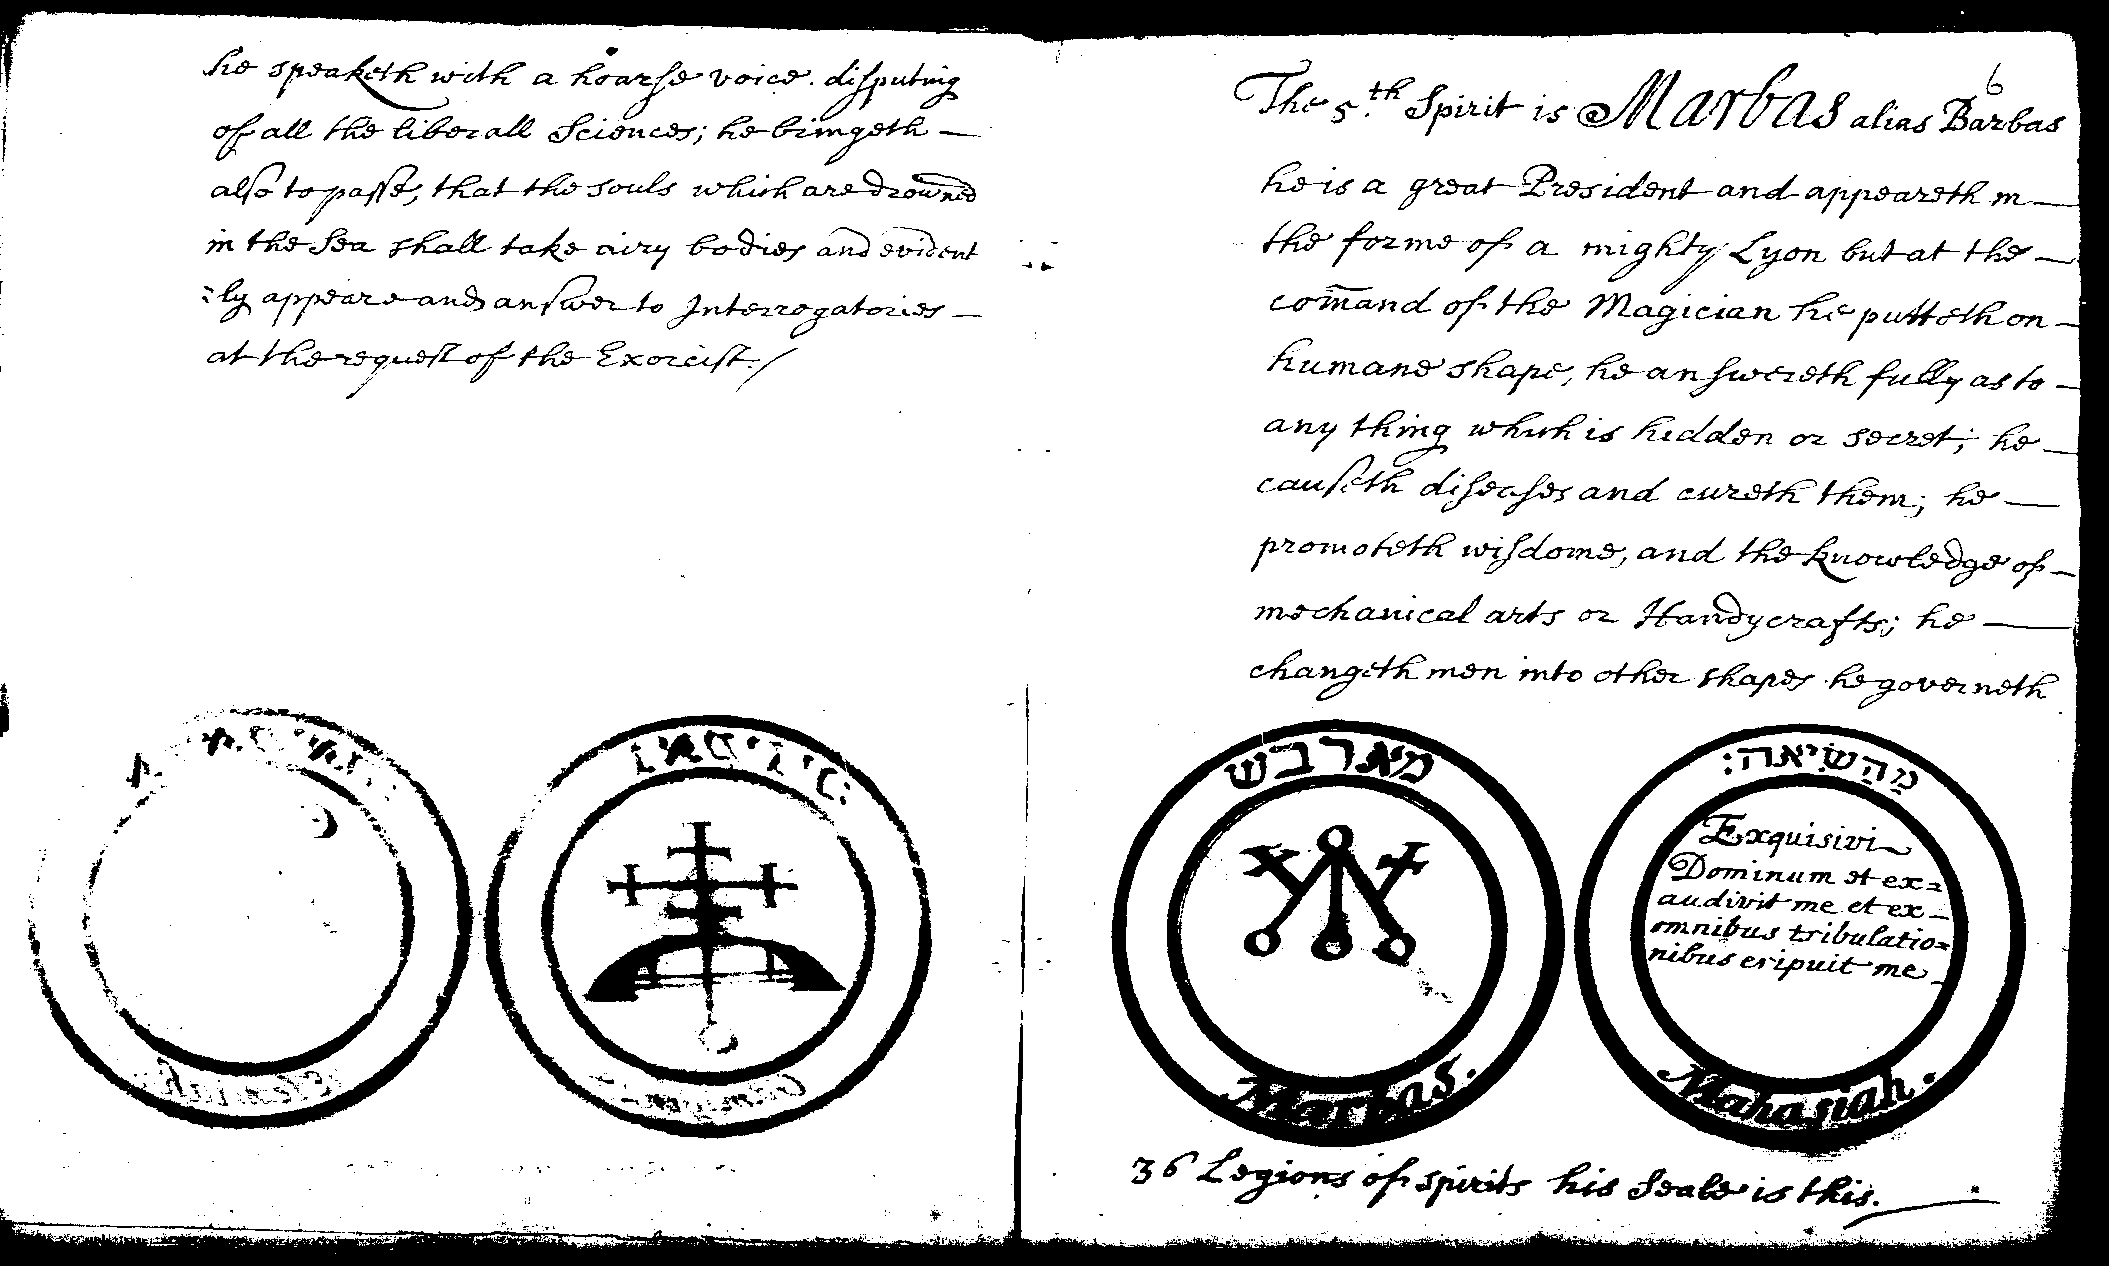 he speaketh with a hoarse voice. disputing
of all the liberall Sciences; he bringeth —
also to passe, that the souls which are drowned
in the Sea shall take airy bodies and evident
:ly appeare and answer to Interrogatories —
at the request of the Exorcist./
6
The 5.th Spirit is Marbas alias Barbas
he is a great President and appeareth in —
the forme of a mighty Lyon but at the —
com̄and of the Magician he putteth on —
humane shape, he answereth fully as to —
any thing which is hidden or secret; he —
causeth diseases and cureth them; he —
promoteth wisdome, and the knowledge of —
mechanical arts or Handycrafts; he —
changeth men into other shapes he governeth
מארבש
Marbas.
מַהַשִׂיאה:
Exquisivi
Dominum et ex=
audivit me et ex —
omnibus tribulatio=
nibus eripuit me
Mahasiah.
36 Legions of spirits his Seale is this.